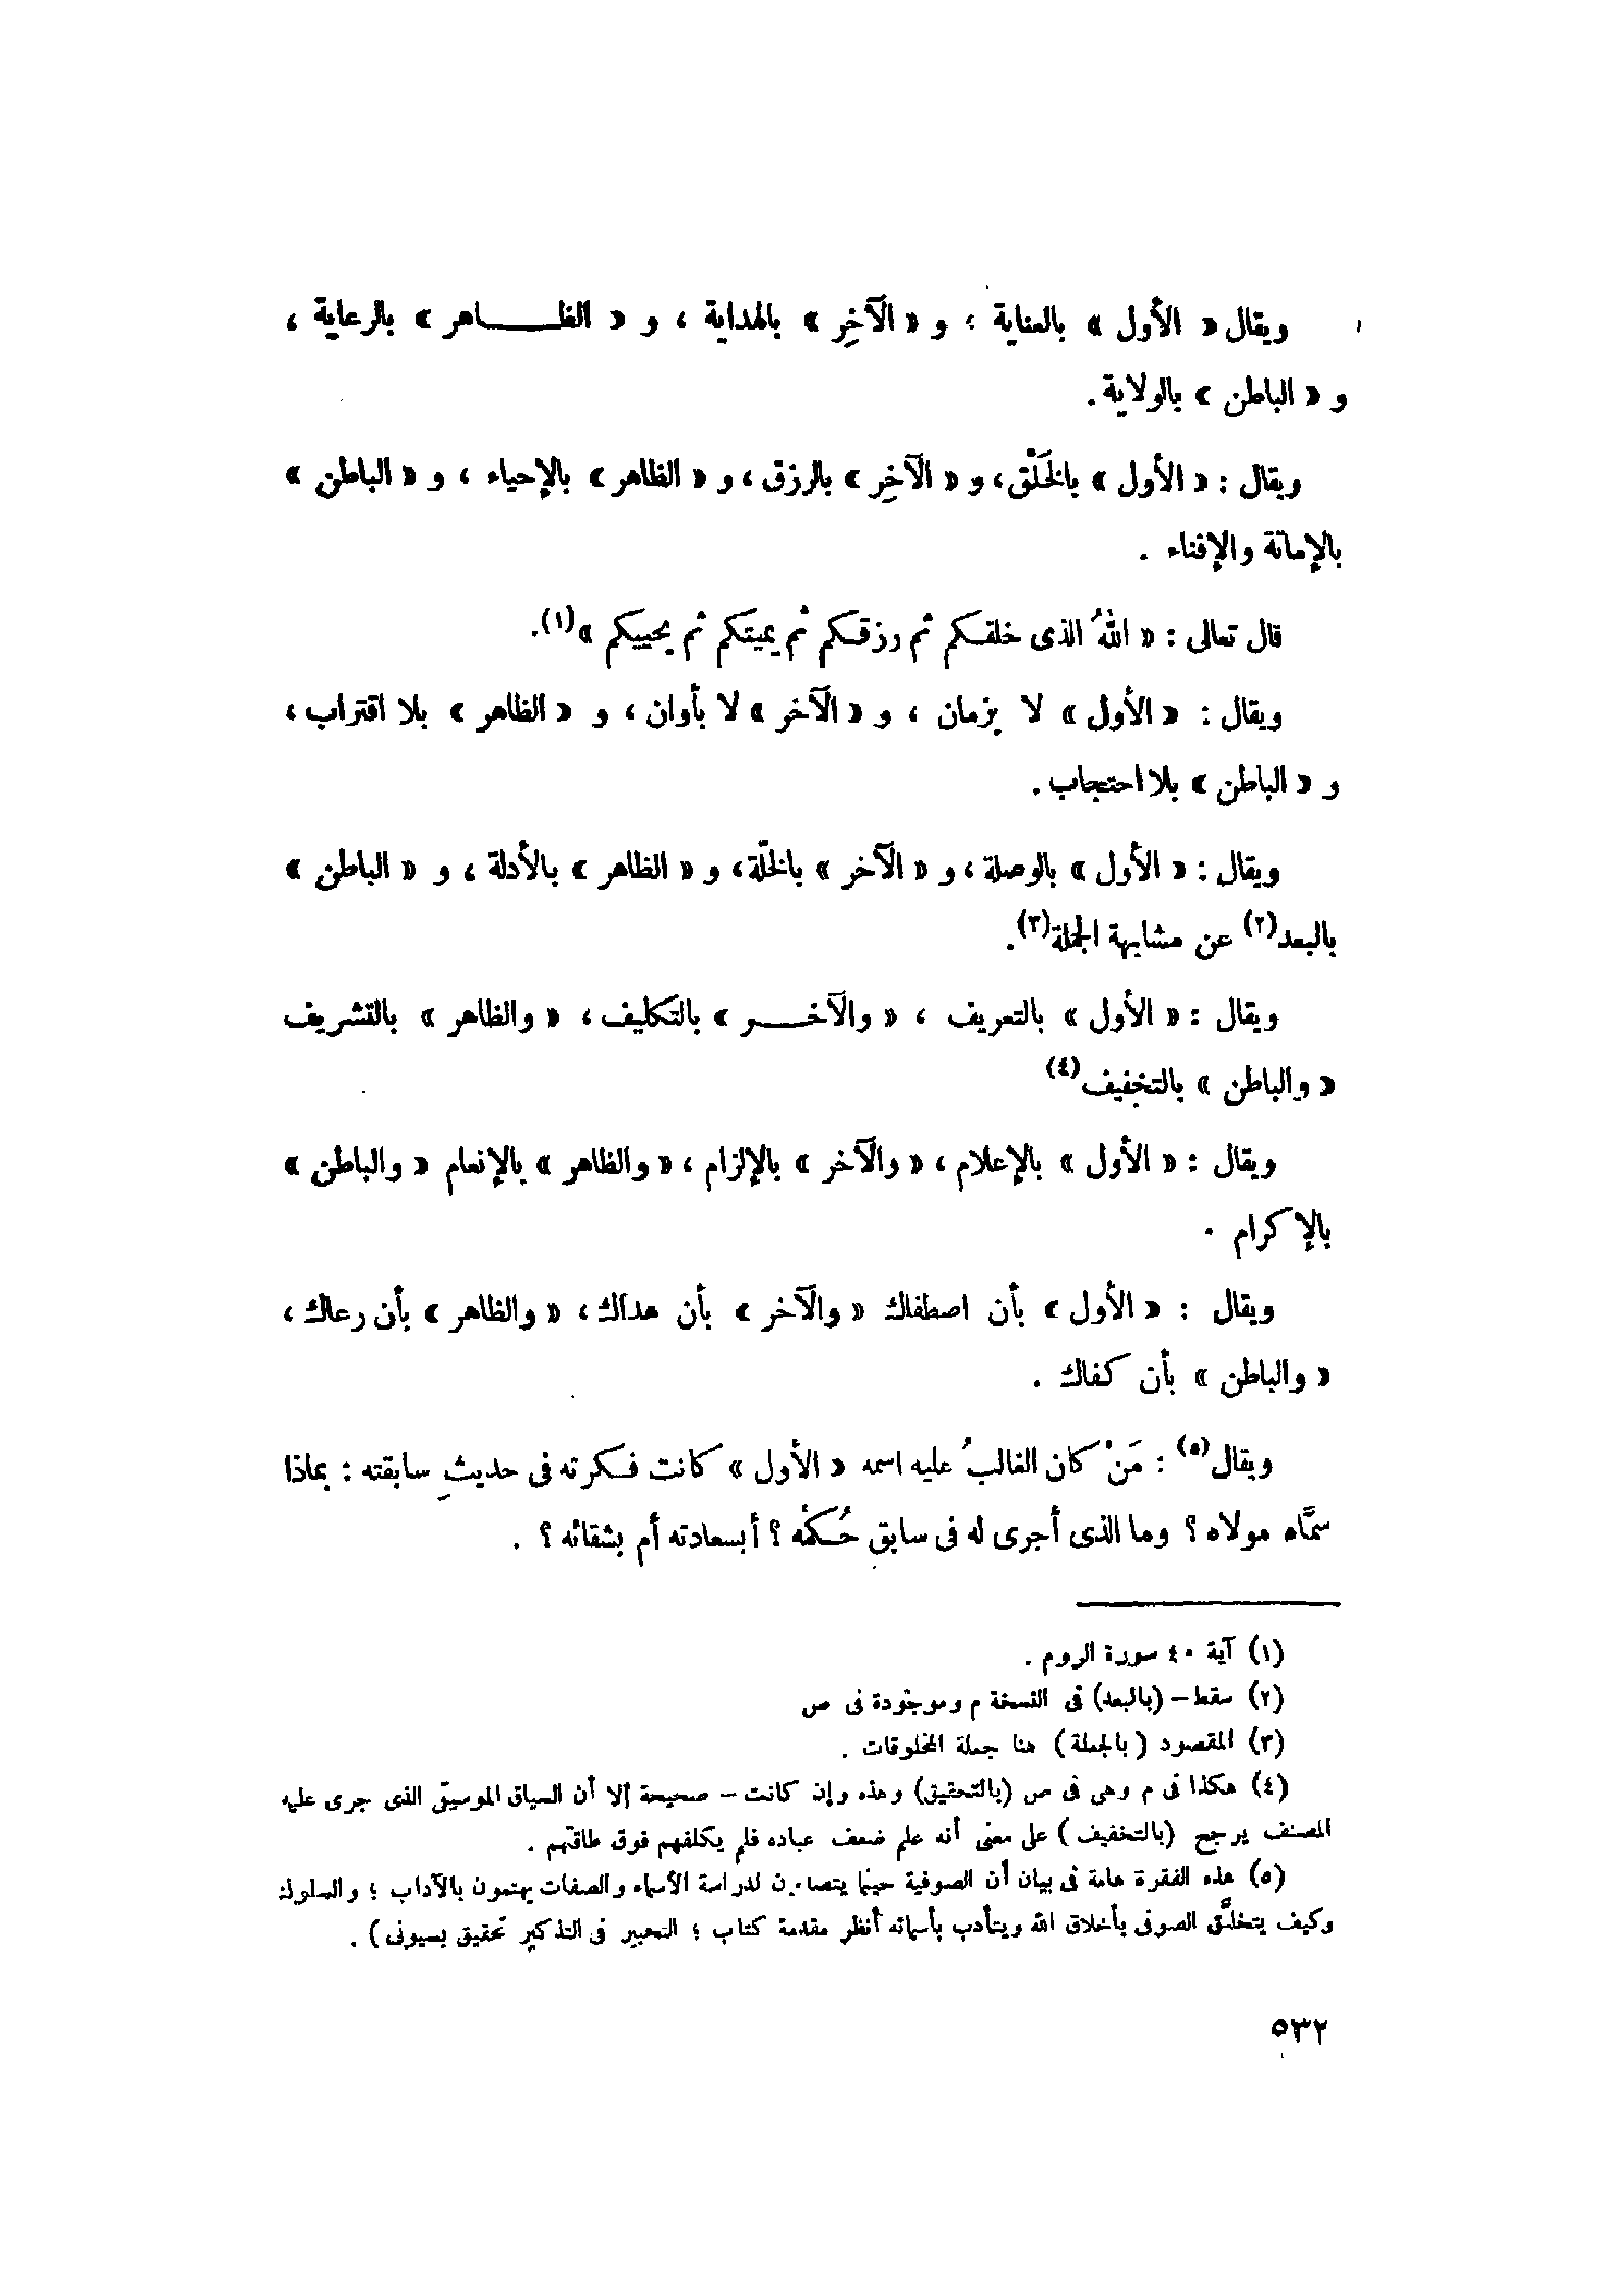 ويقال « الأول » بالعناية ؛ و « الآخِر » بالهداية ، و « الظـــاهر » بالرعاية ،
و « الباطن » بالولاية .
ويقال : « الأول » بالخَلْق ، و « الآخِر » بالرزق ، و « الظاهر » بالإحياء ، و « الباطن »
بالإماتة والإفناء .
قال تعالى : « اللهُ الذى خلقكم ثم رزقكم ثم يميتكم ثم يحييكم »(١).
ويقال : « الأول » لا بزمان ، و « الآخر » لا بأوان ، و « الظاهر » بلا اقتراب ،
و « الباطن » بلا احتجاب .
ويقال : « الأول » بالوصلة ، و « الآخر » بالخلّة ، و « الظاهر » بالأدلة ، و « الباطن »
بالبعد(٢) عن مشابهة الجملة(٣).
ويقال : « الأول » بالتعريف ، « والآخـــر » بالتكليف ، « والظاهر » بالتشريف
« والباطن » بالتخفيف(٤)
ويقال : « الأول » بالإعلام ، « والآخر » بالإلزام ، « والظاهر » بالإنعام « والباطن »
بالإكرام .
ويقال : « الأول » بأن اصطفاك « والآخر » بأن هداك ، « والظاهر » بأن رعاك ،
« والباطن » بأن كفاك .
ويقال(٥) : مَنْ كان الغالبُ عليه اسمه « الأول » كانت فكرته فى حديثِ سابقته : بماذا
سمَّاه مولاه ؟ وما الذى أجرى له فى سابق حُكمْه ؟ أبسعادته أم بشقائه ؟ .
(١) آية ٤٠ سورة الروم .
(٢) سقط – (بالبعد) فى النسخة م وموجودة فى ص
(٣) المقصود ( بالجملة ) هنا جملة المخلوقات .
(٤) هكذا فى م وهى فى ص (بالتحقيق) وهذه وإن كانت – صحيحة إلا أن السياق الموسيقى الذى جرى عليه
المصنف يرجح (بالتخفيف ) على معنى أنه علم ضعف عباده فلم يكلفهم فوق طاقتهم .
(٥) هذه الفقرة هامة فى بيان أن الصوفية حينما لدراسة الأسماء والصفات يهتمون بالآداب ؛ والسلوك
وكيف يتخلَّق الصوفى بأخلاق الله ويتأدب بأسمائه أنظر مقدمة كتاب ؛ التحبير فى التذكير تحقيق بسيونى ) .
٥٣٢